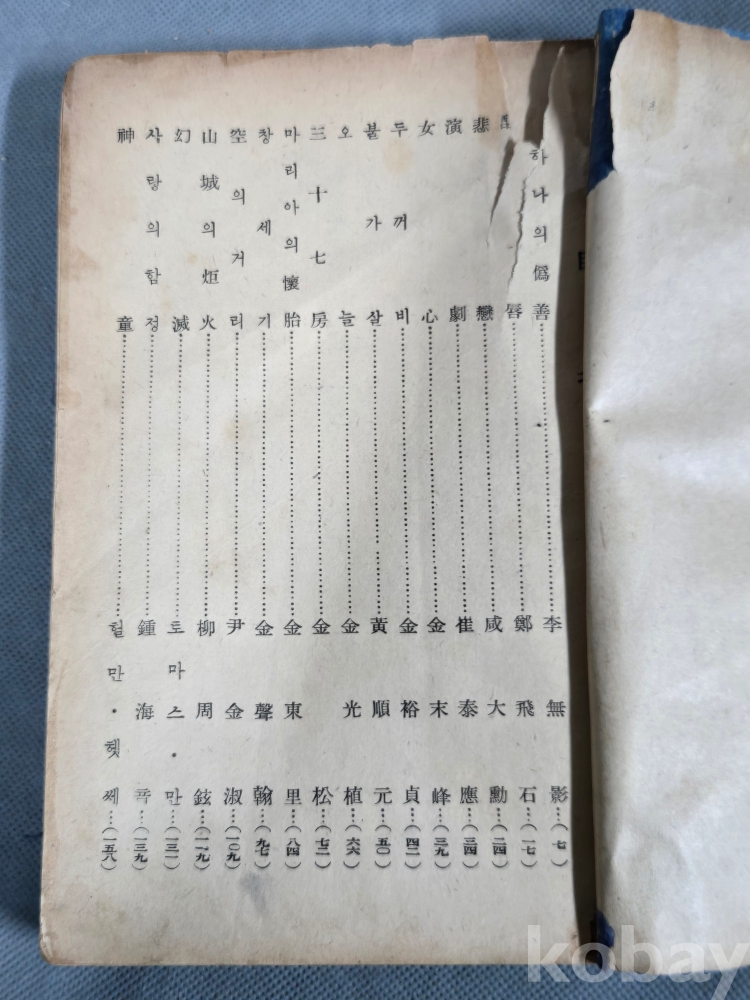 하나의僞善……李無影…(七)
唇……鄭飛石…(一七)
悲戀……咸大勳…(二四)
演劇……崔泰應…(三四)
女心……金末峰…(三九)
두꺼비……金裕貞…(四二)
불가살……黃順元…(五〇)
오늘……金光植…(六六)
三十七房……金松…(七二)
마리아의懷胎……金東里…(八四)
창세기……金聲翰…(九七)
空의거리……尹金淑…(一〇九)
山城의炬火……柳周鉉…(一一九)
幻滅……토마스·만…(一三一)
사랑의함정……鍾海…(一三九)
神童……헐만·헷쎄…(一五八)
kobay